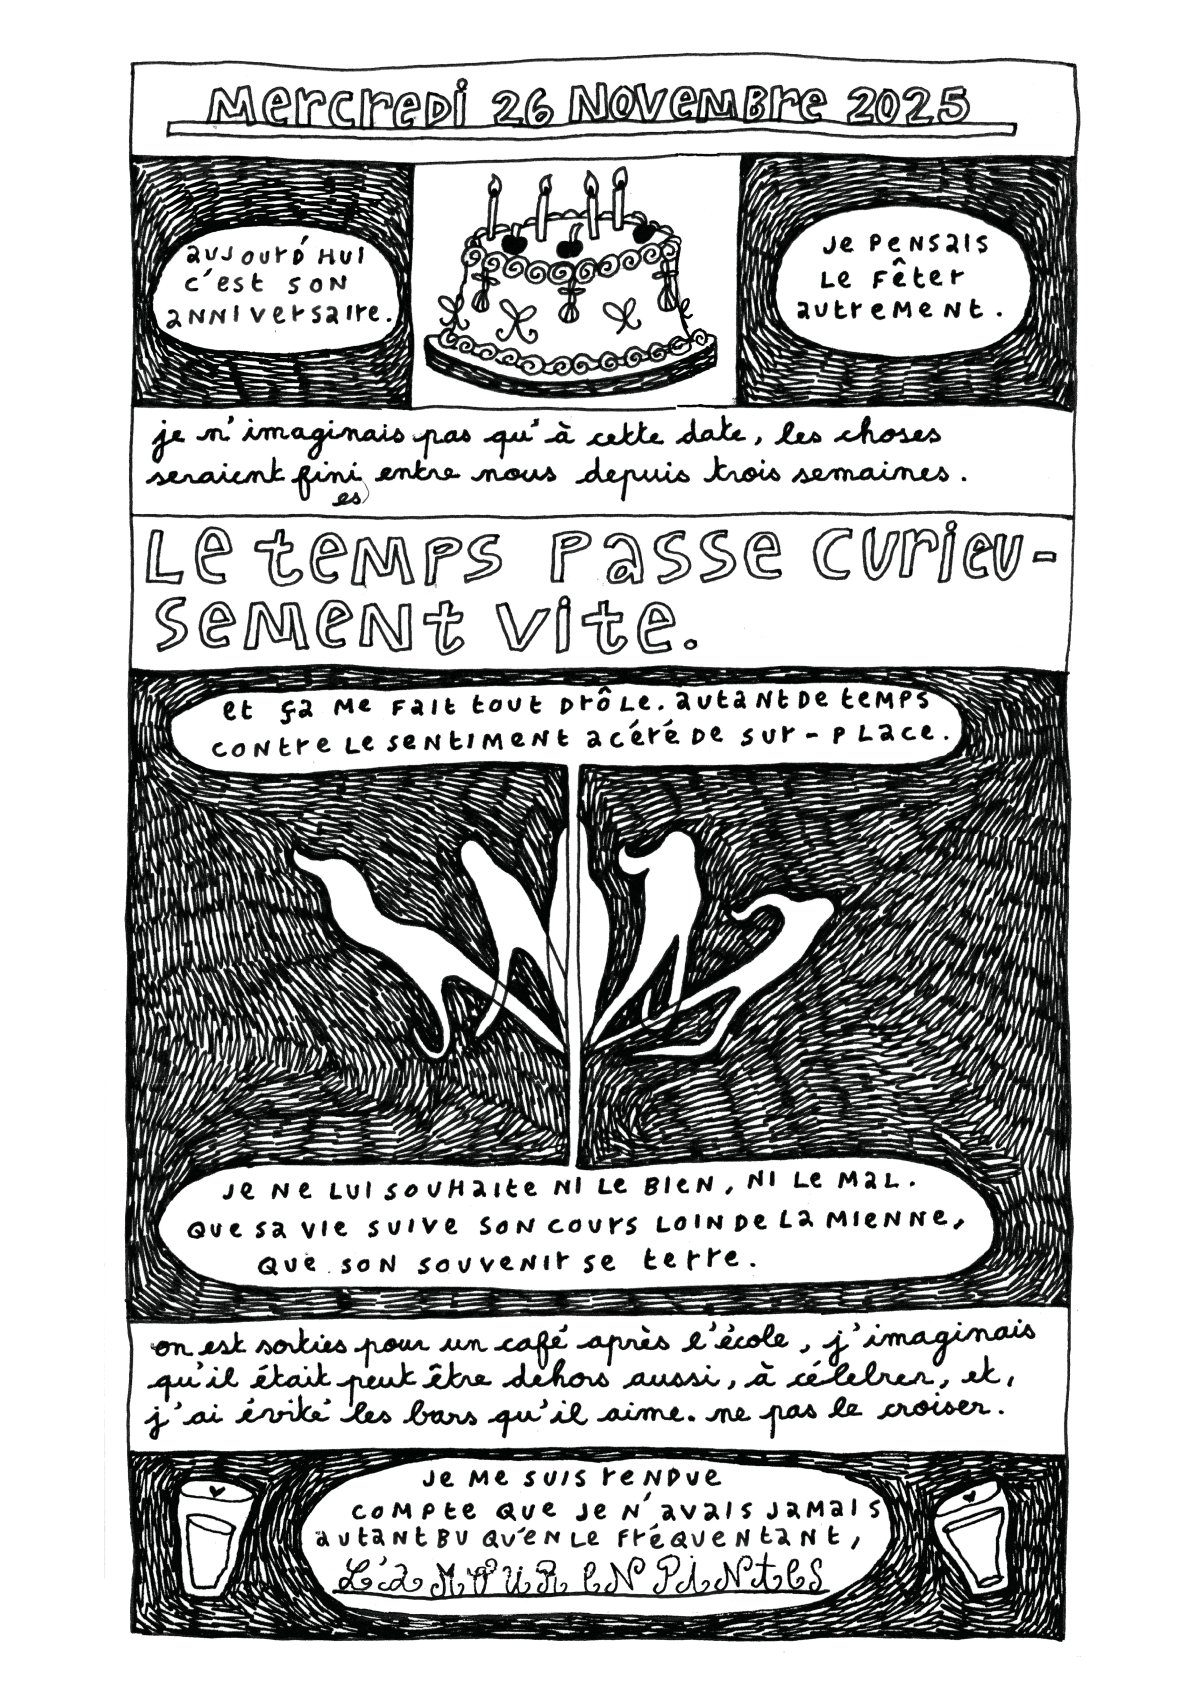 Mercredi 26 Novembre 2025
aujourd'hui
c'est son
anniversaire.
je pensais
le fêter
autrement.
je n'imaginais pas qu'à cette date, les choses
seraient fini entre nous depuis trois semaines.
es
Le temps passe curieu-
sement vite.
et ça me fait tout drôle. autant de temps
contre le sentiment acéré de sur-place.
je ne lui souhaite ni le bien, ni le mal.
que sa vie suive son cours loin de la mienne,
que son souvenir se terre.
on est sorties pour un café après l'école, j'imaginais
qu'il était peut être dehors aussi, à célébrer, et,
j'ai évité les bars qu'il aime. ne pas le croiser.
je me suis rendue
compte que je n'avais jamais
autant bu qu'en le fréquentant,
L'amour en pintes